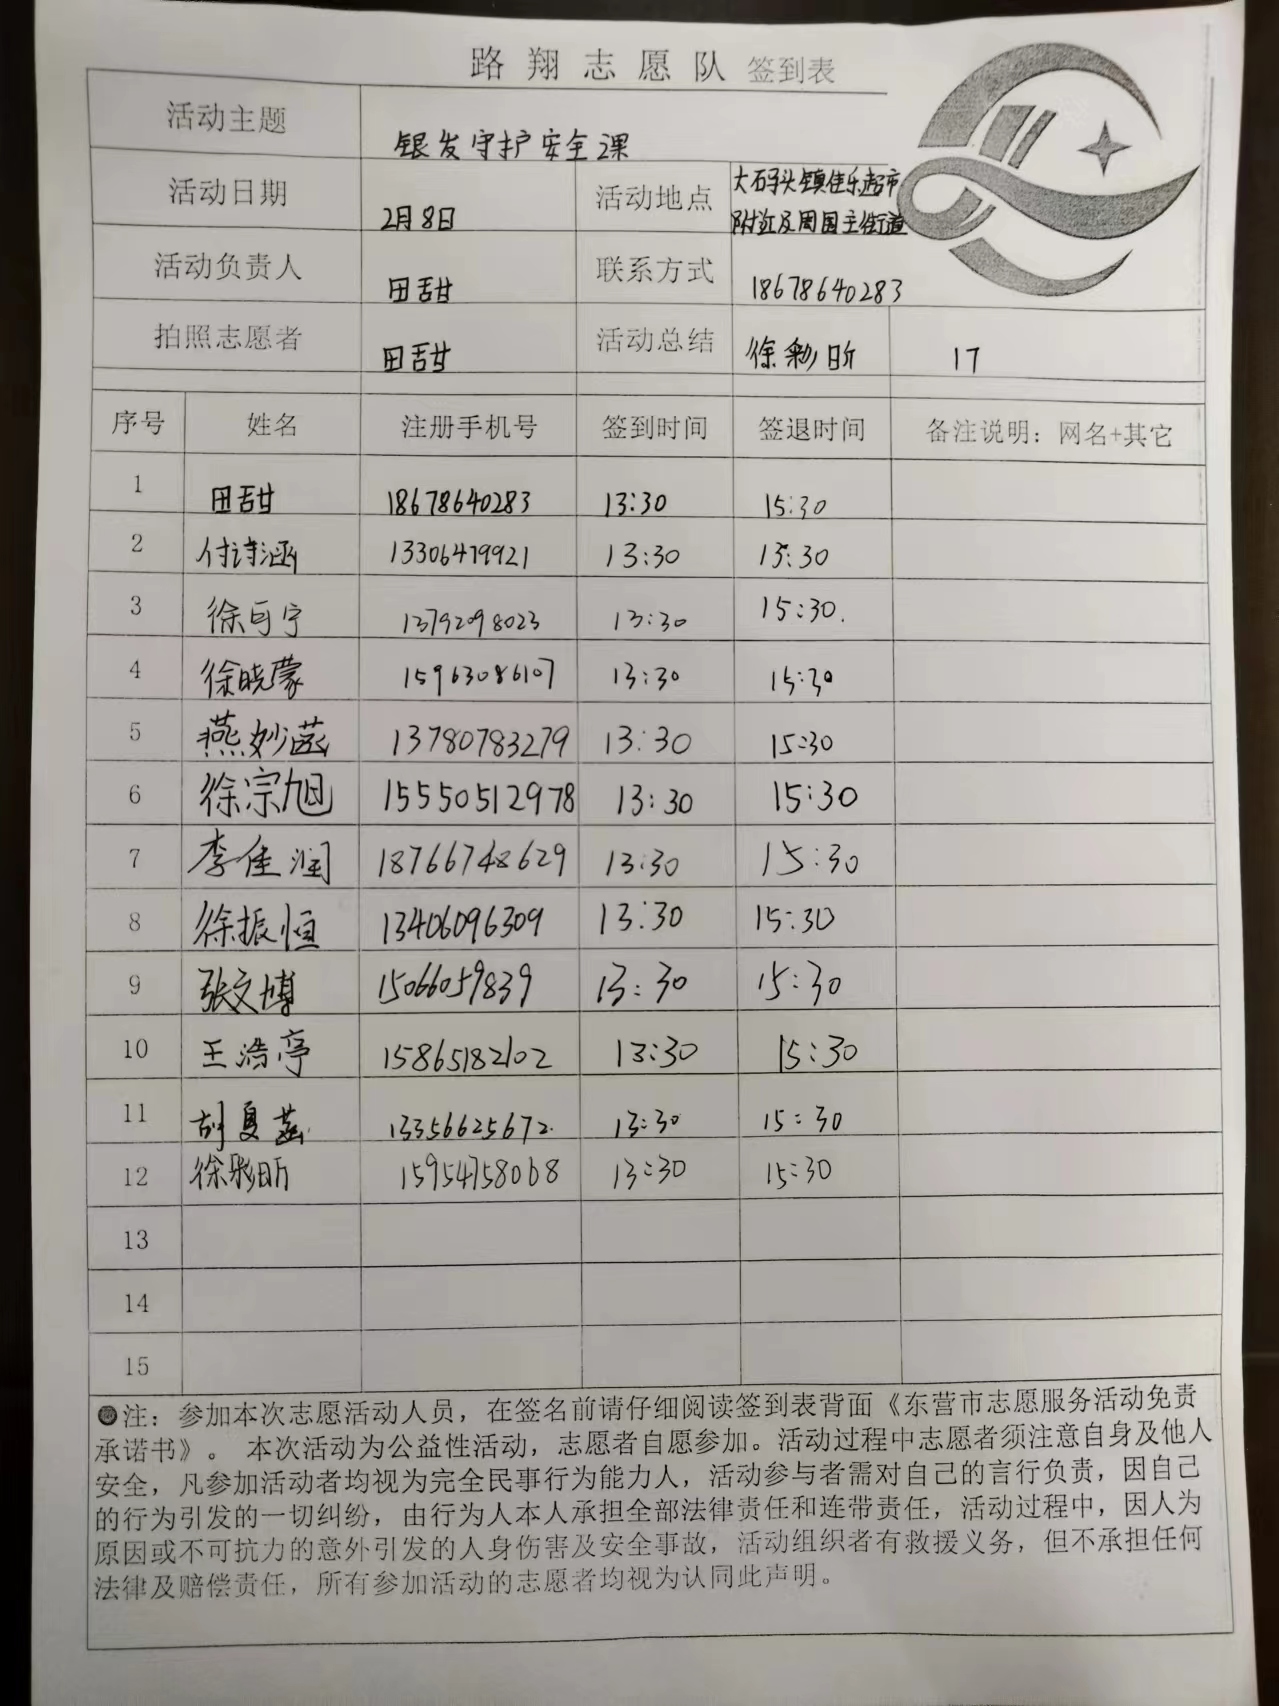 路翔志愿队 签到表
活动主题 银发守护安全课
活动日期 2月8日 活动地点 大码头镇佳乐超市
附近及周围主街道
活动负责人 田甜 联系方式 18678640283
拍照志愿者 田甜 活动总结 徐彩昕 17
序号 姓名 注册手机号 签到时间 签退时间 备注说明：网名+其它
1 田甜 18678640283 13:30 15:30
2 付诗涵 13306479921 13:30 15:30
3 徐可宁 13792098023 13:30 15:30.
4 徐晓蒙 15963086107 13:30 15:30
5 燕妙菡 13780783279 13:30 15:30
6 徐宗旭 15550512978 13:30 15:30
7 李佳润 18766748629 13:30 15:30
8 徐振恒 13406096309 13:30 15:30
9 张文博 15066059839 13:30 15:30
10 王浩亭 15865182102 13:30 15:30
11 胡夏 13356625672. 13:30 15:30
12 徐彩昕 15954758068 13:30 15:30
13
14
15
●注：参加本次志愿活动人员，在签名前请仔细阅读签到表背面《东营市志愿服务活动免责
承诺书》。 本次活动为公益性活动，志愿者自愿参加。活动过程中志愿者须注意自身及他人
安全，凡参加活动者均视为完全民事行为能力人，活动参与者需对自己的言行负责，因自己
的行为引发的一切纠纷，由行为人本人承担全部法律责任和连带责任，活动过程中，因人为
原因或不可抗力的意外引发的人身伤害及安全事故，活动组织者有救援义务，但不承担任何
法律及赔偿责任，所有参加活动的志愿者均视为认同此声明。